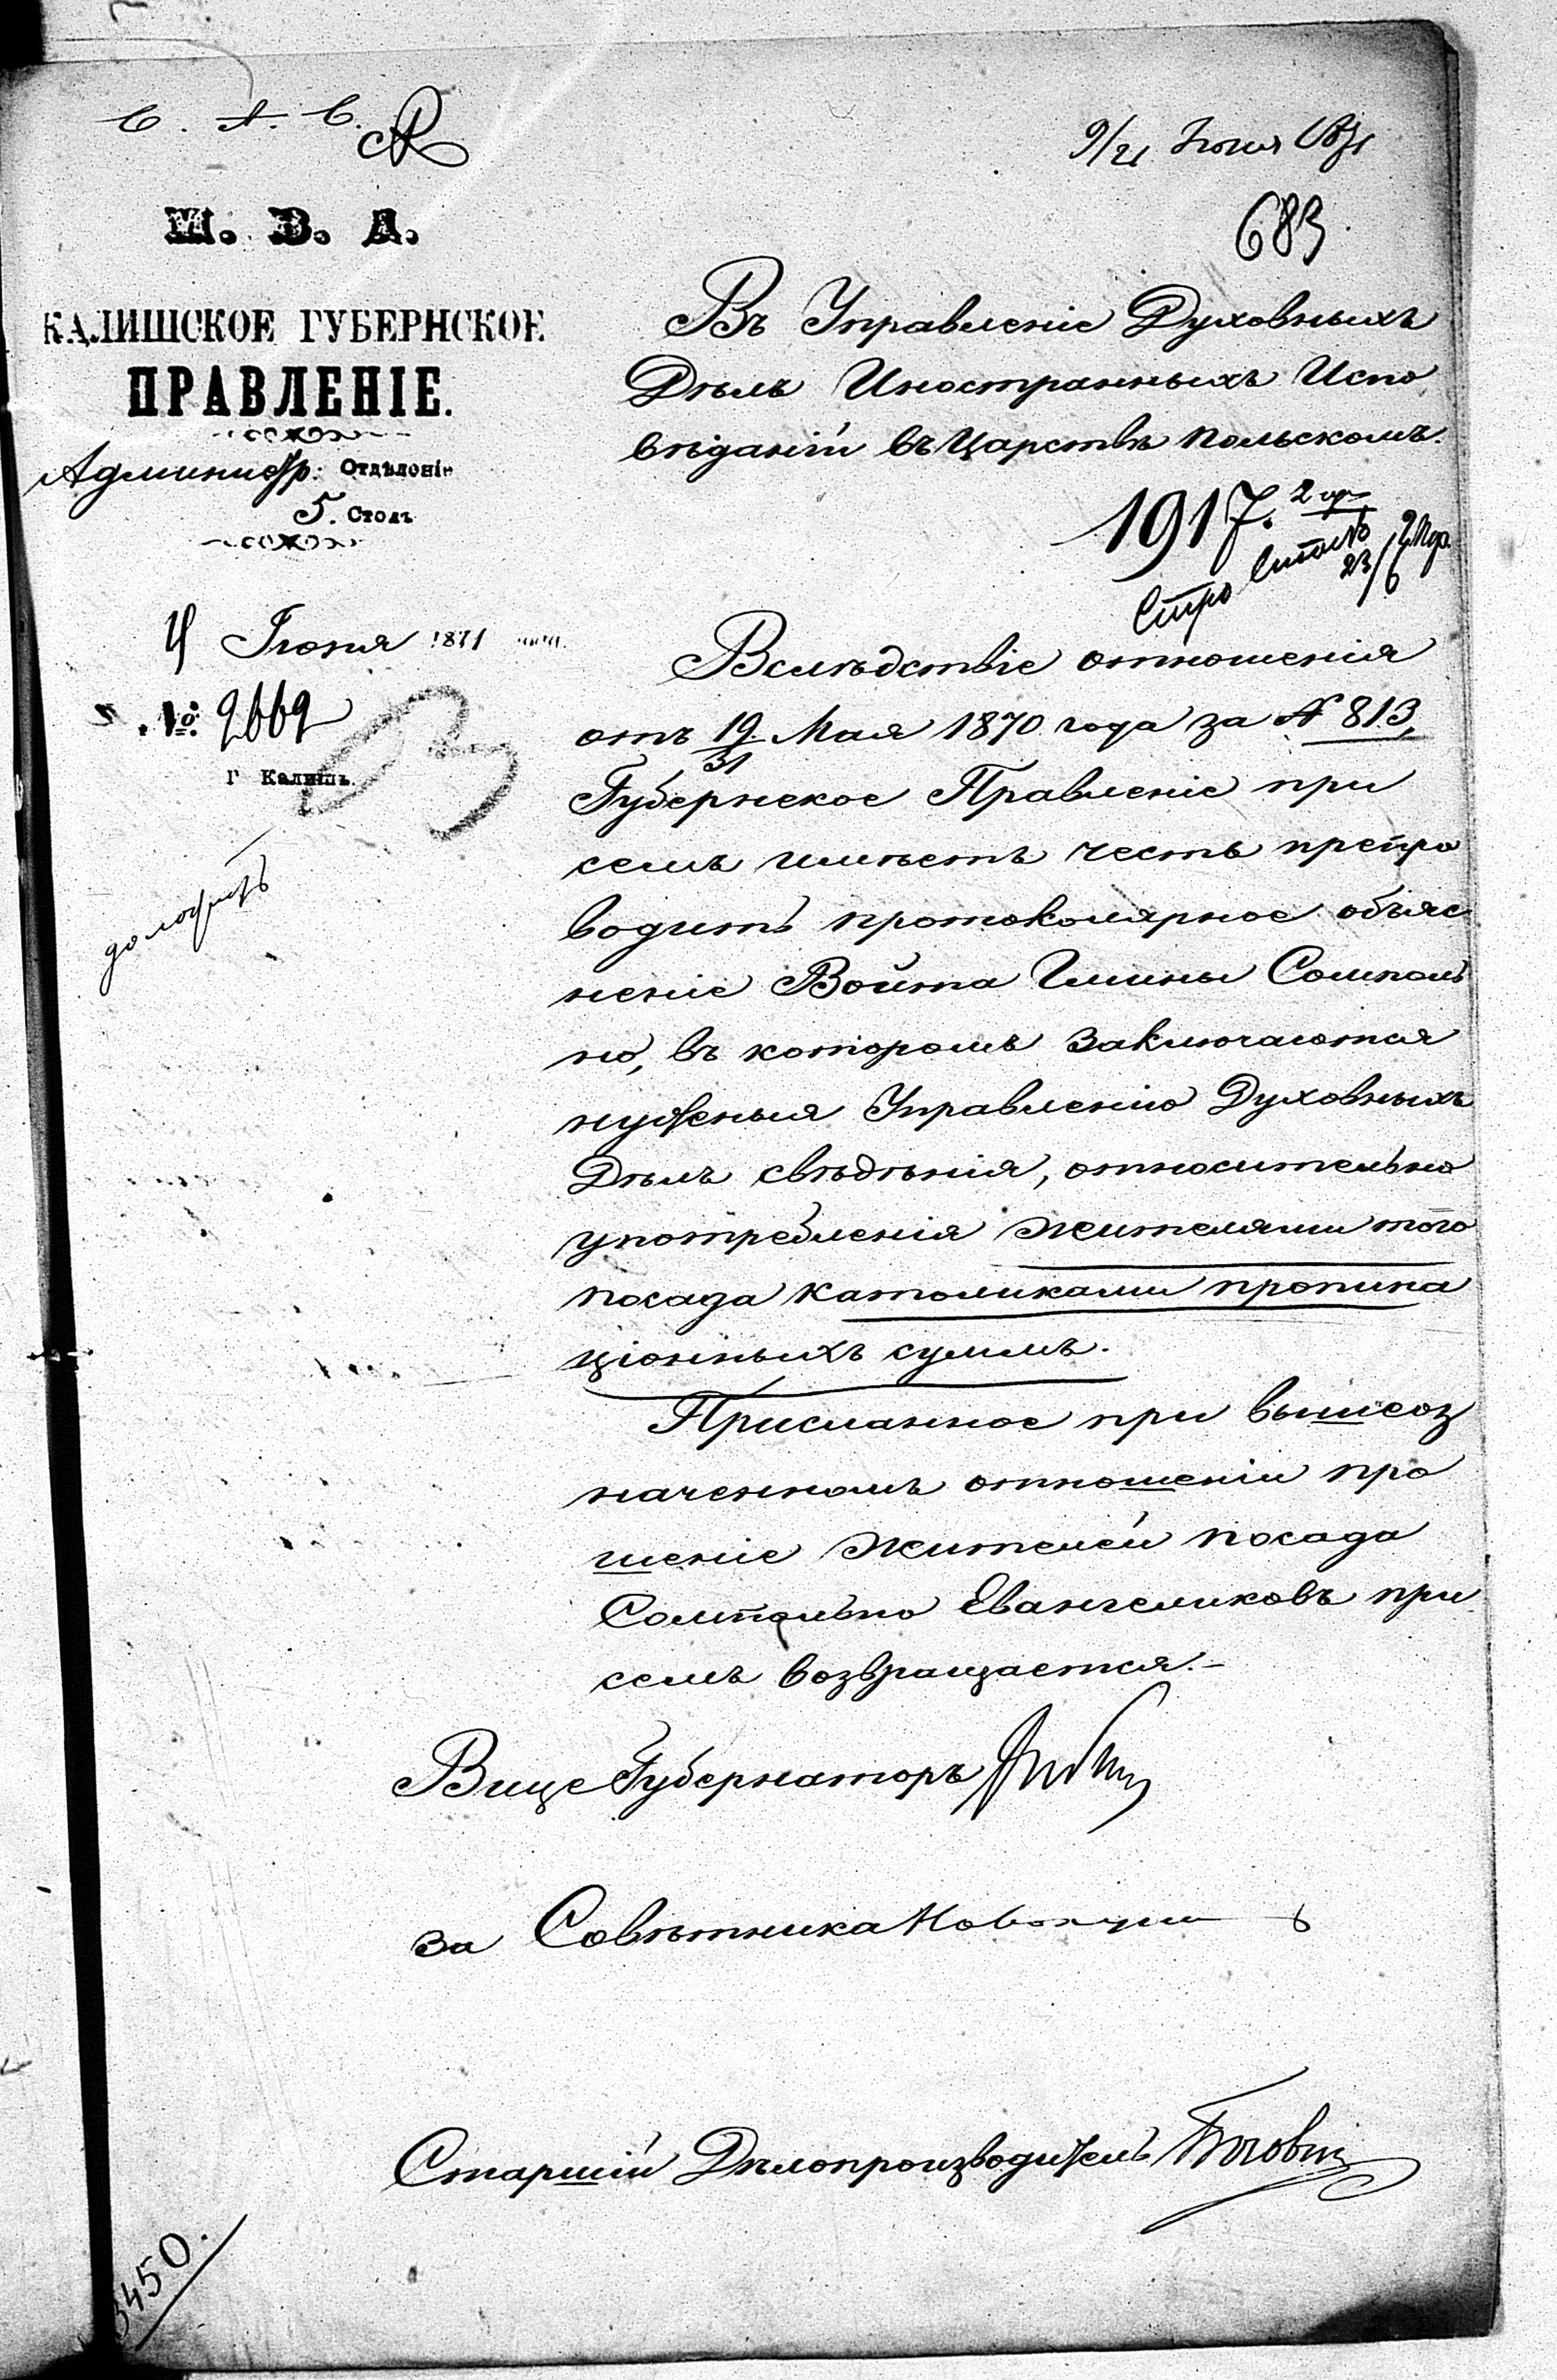 9/21 Іюня 1871
683.
М. В. Д.
КАЛИШСКОЕ ГУБЕРНСКОЕ
ПРАВЛЕНІЕ.
Администр: Отдѣленіе
5. Столъ
4 Іюня 1871
№ 2669
Г Калишъ.
доложить
Въ Управленіе Духовныхъ
Дѣлъ Иностранныхъ Испо
вѣданій въ Царствѣ Польскомъ.
1917.
Вслѣдствіе отношенія
отъ 19/31 Мая 1870 года за № 813,
Губернское Правленіе при
семъ имѣетъ честь препро
водить протоколярное объяс
неніе Войта Гмины Сомполь
но, въ которомъ заключаются
нужныя Управленію Духовныхъ
Дѣлъ свѣдѣнія, относительно
употребленія жителями того
посада католиками пропина
ціонныхъ суммъ.
Присланное при вышеоз
наченномъ отношеніи про
шеніе жителей посада
Сомпольно Евангеликовъ при
семъ возвращается.–
Вице Губернаторъ
За Совѣтника
Старшій Дѣлопроизводитель
3450.